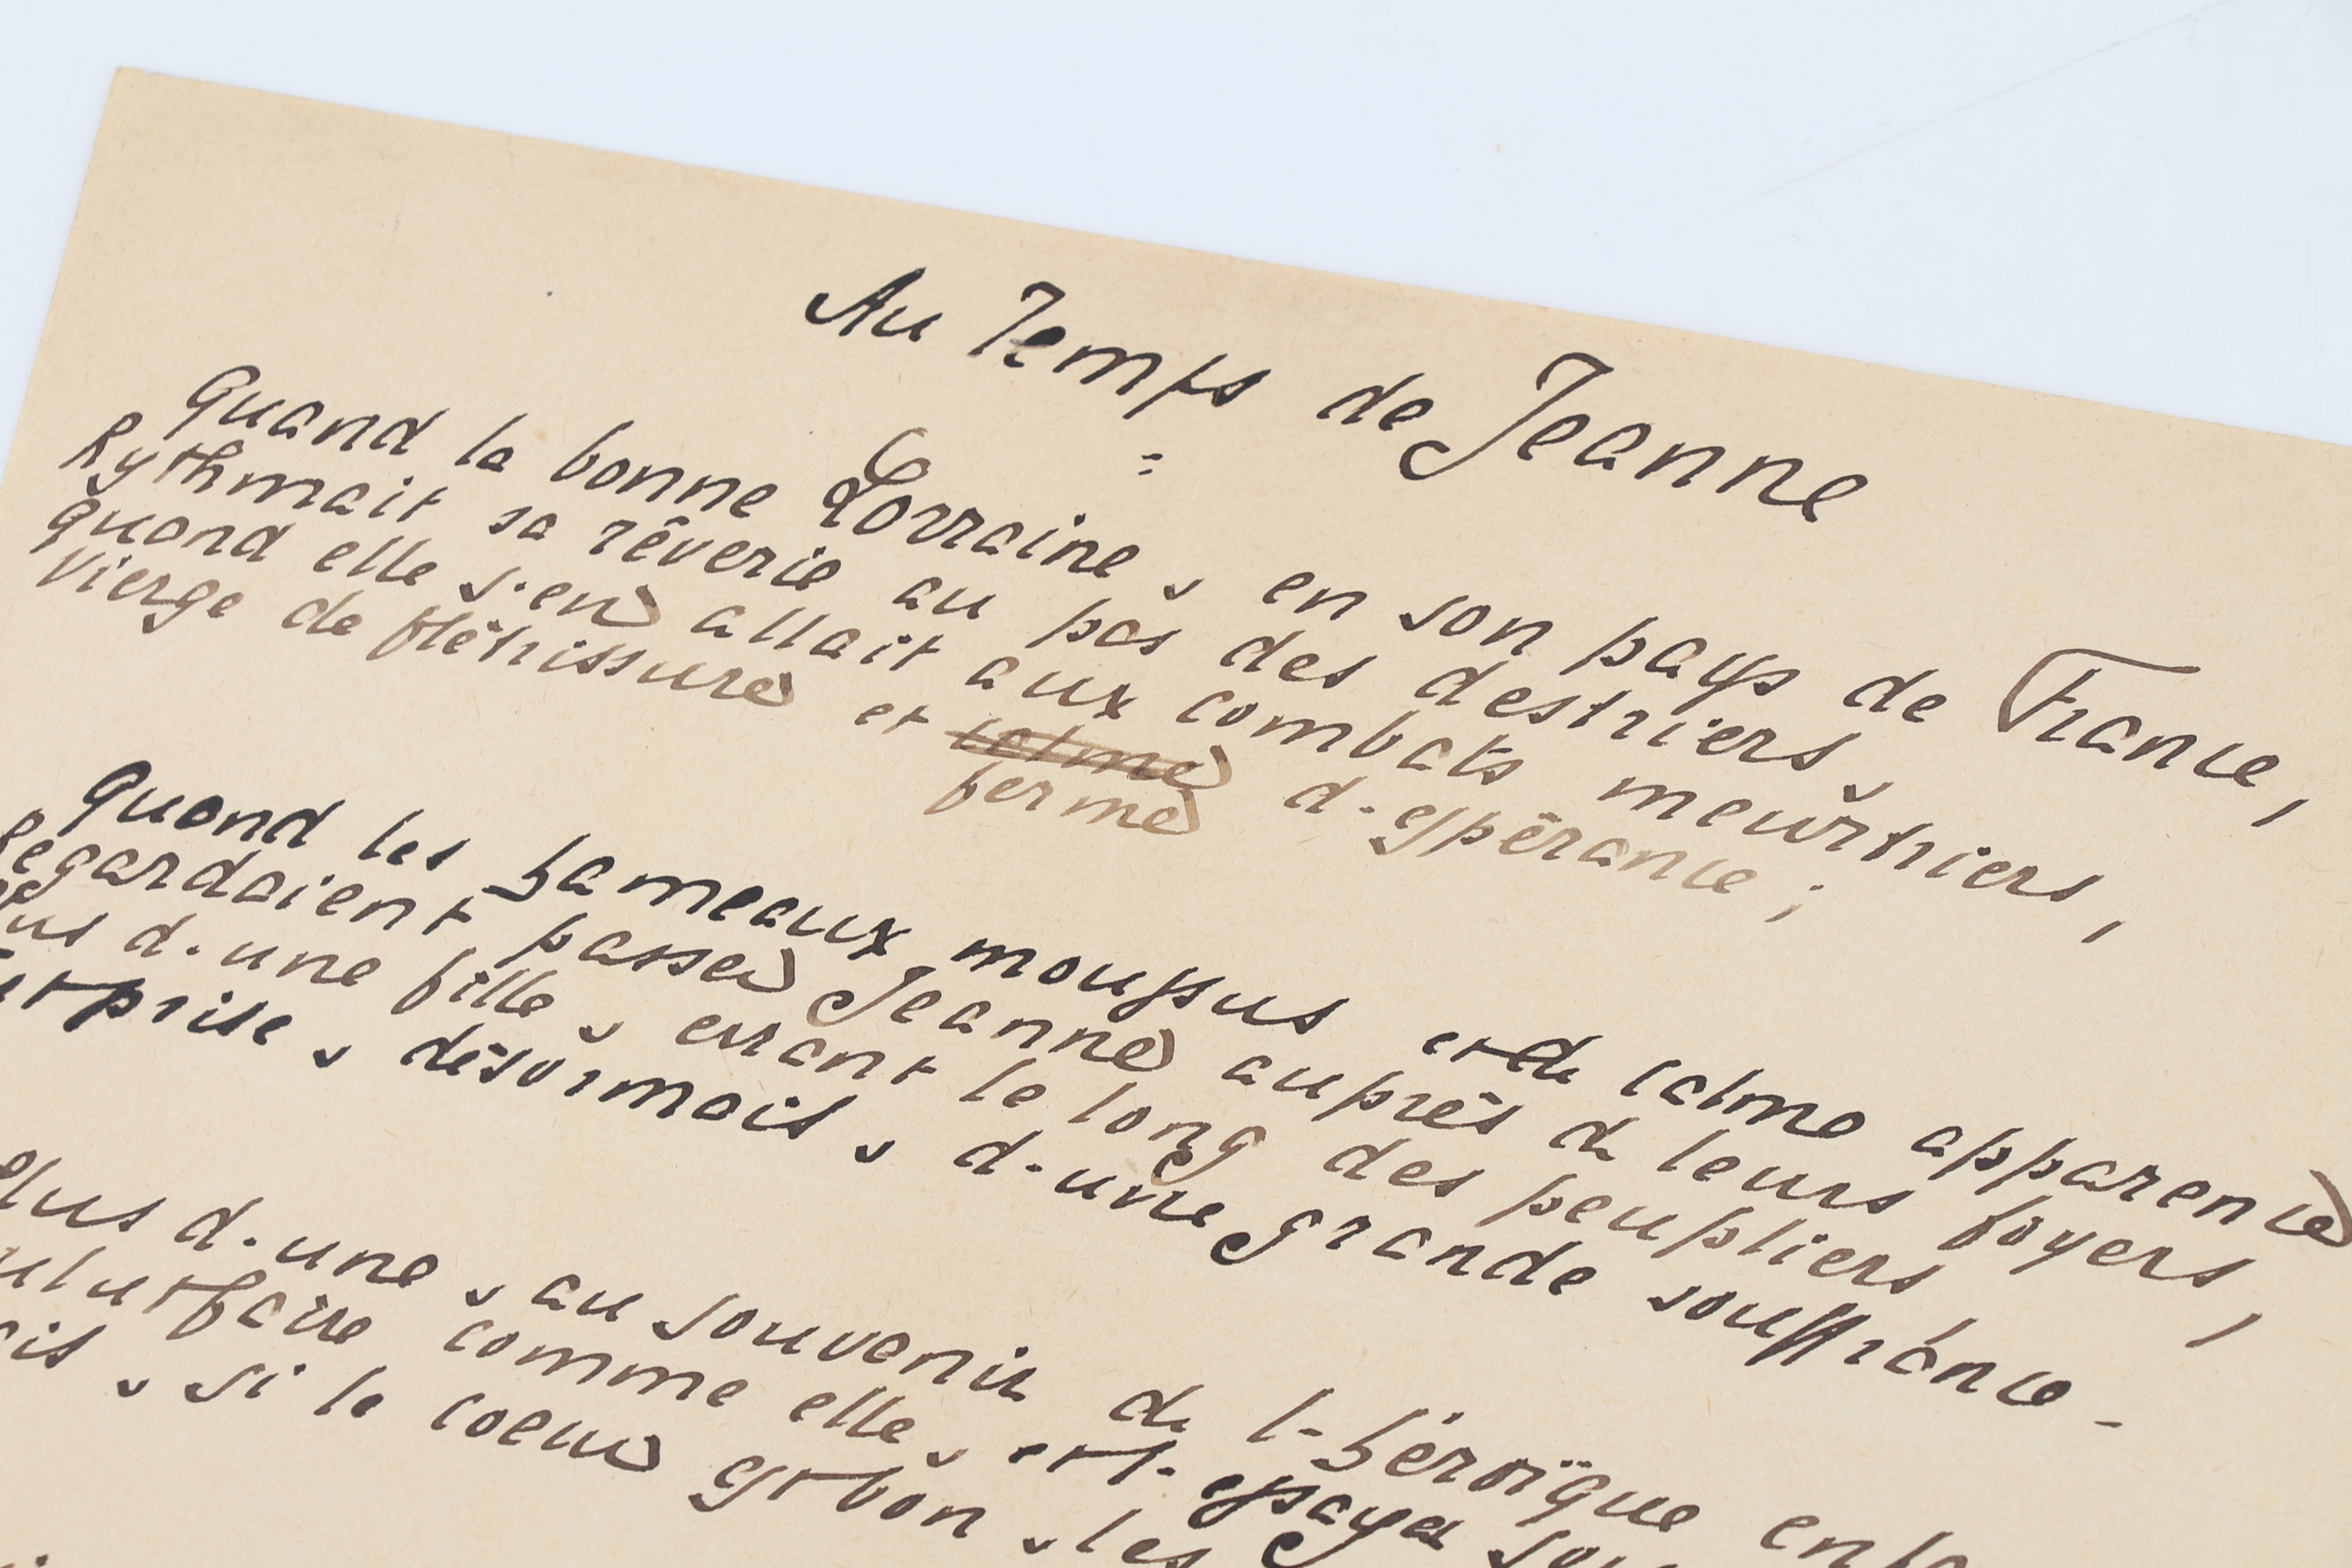 Au Temps de Jeanne
=
Quand la bonne Lorraine, en son pays de France,
Rythmait sa rêverie au pas des destriers,
quand elle s'en allait aux combats meurtriers,
Vierge de flétrissure et calme d'espérance;
ferme
Quand les hameaux moussus et de calme apparence
Regardaient passer Jeanne auprès de leurs foyers,
d'une fille, errant le long des peupliers,
désormais, d'une grande souffrance.
Plus d'une, au souvenir de l'héroïque
faire comme elle, et l'essaya
si le coeur est bon, les